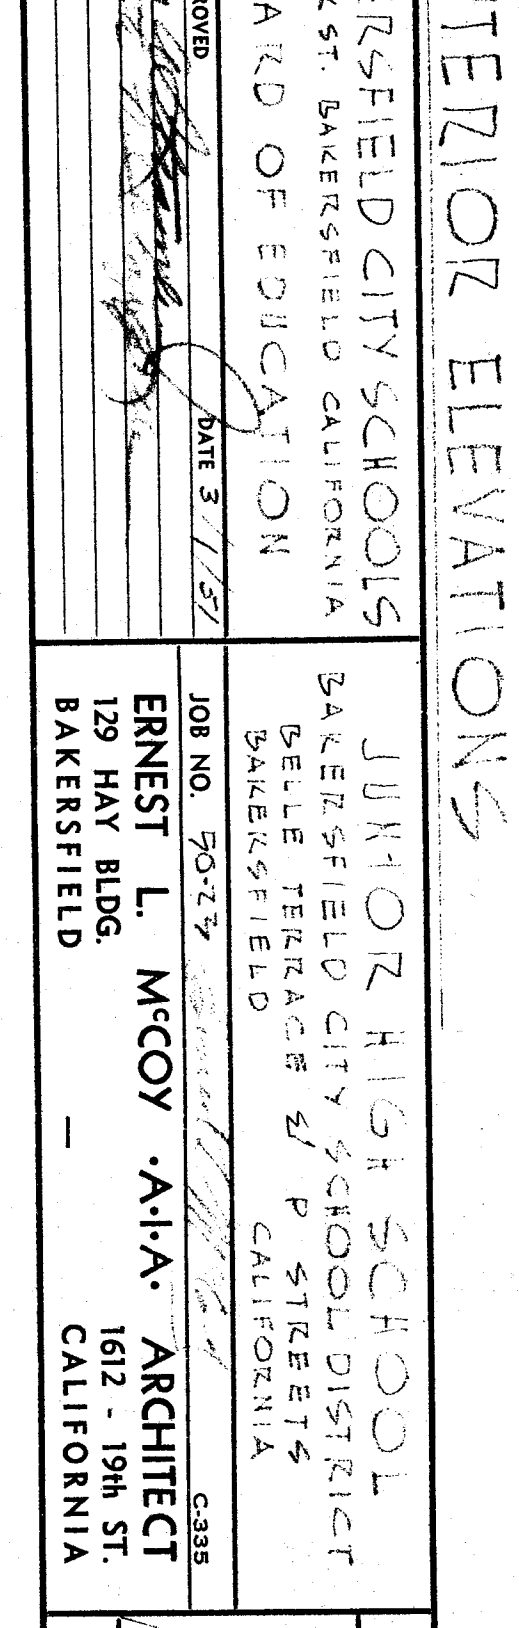 TERIOR ELEVATIONS
ERSFIELD CITY SCHOOLS
K ST. BAKERSFIELD CALIFORNIA
ARD OF EDUCATION
ROVED DATE 3/1/51
JUNIOR HIGH SCHOOL
BAKERSFIELD CITY SCHOOL DISTRICT
BELLE TERRACE & P STREETS
BAKERSFIELD CALIFORNIA
JOB NO. 50-23 C-335
ERNEST L. McCOY ·A·I·A· ARCHITECT
129 HAY BLDG. 1612 - 19th ST.
BAKERSFIELD — CALIFORNIA